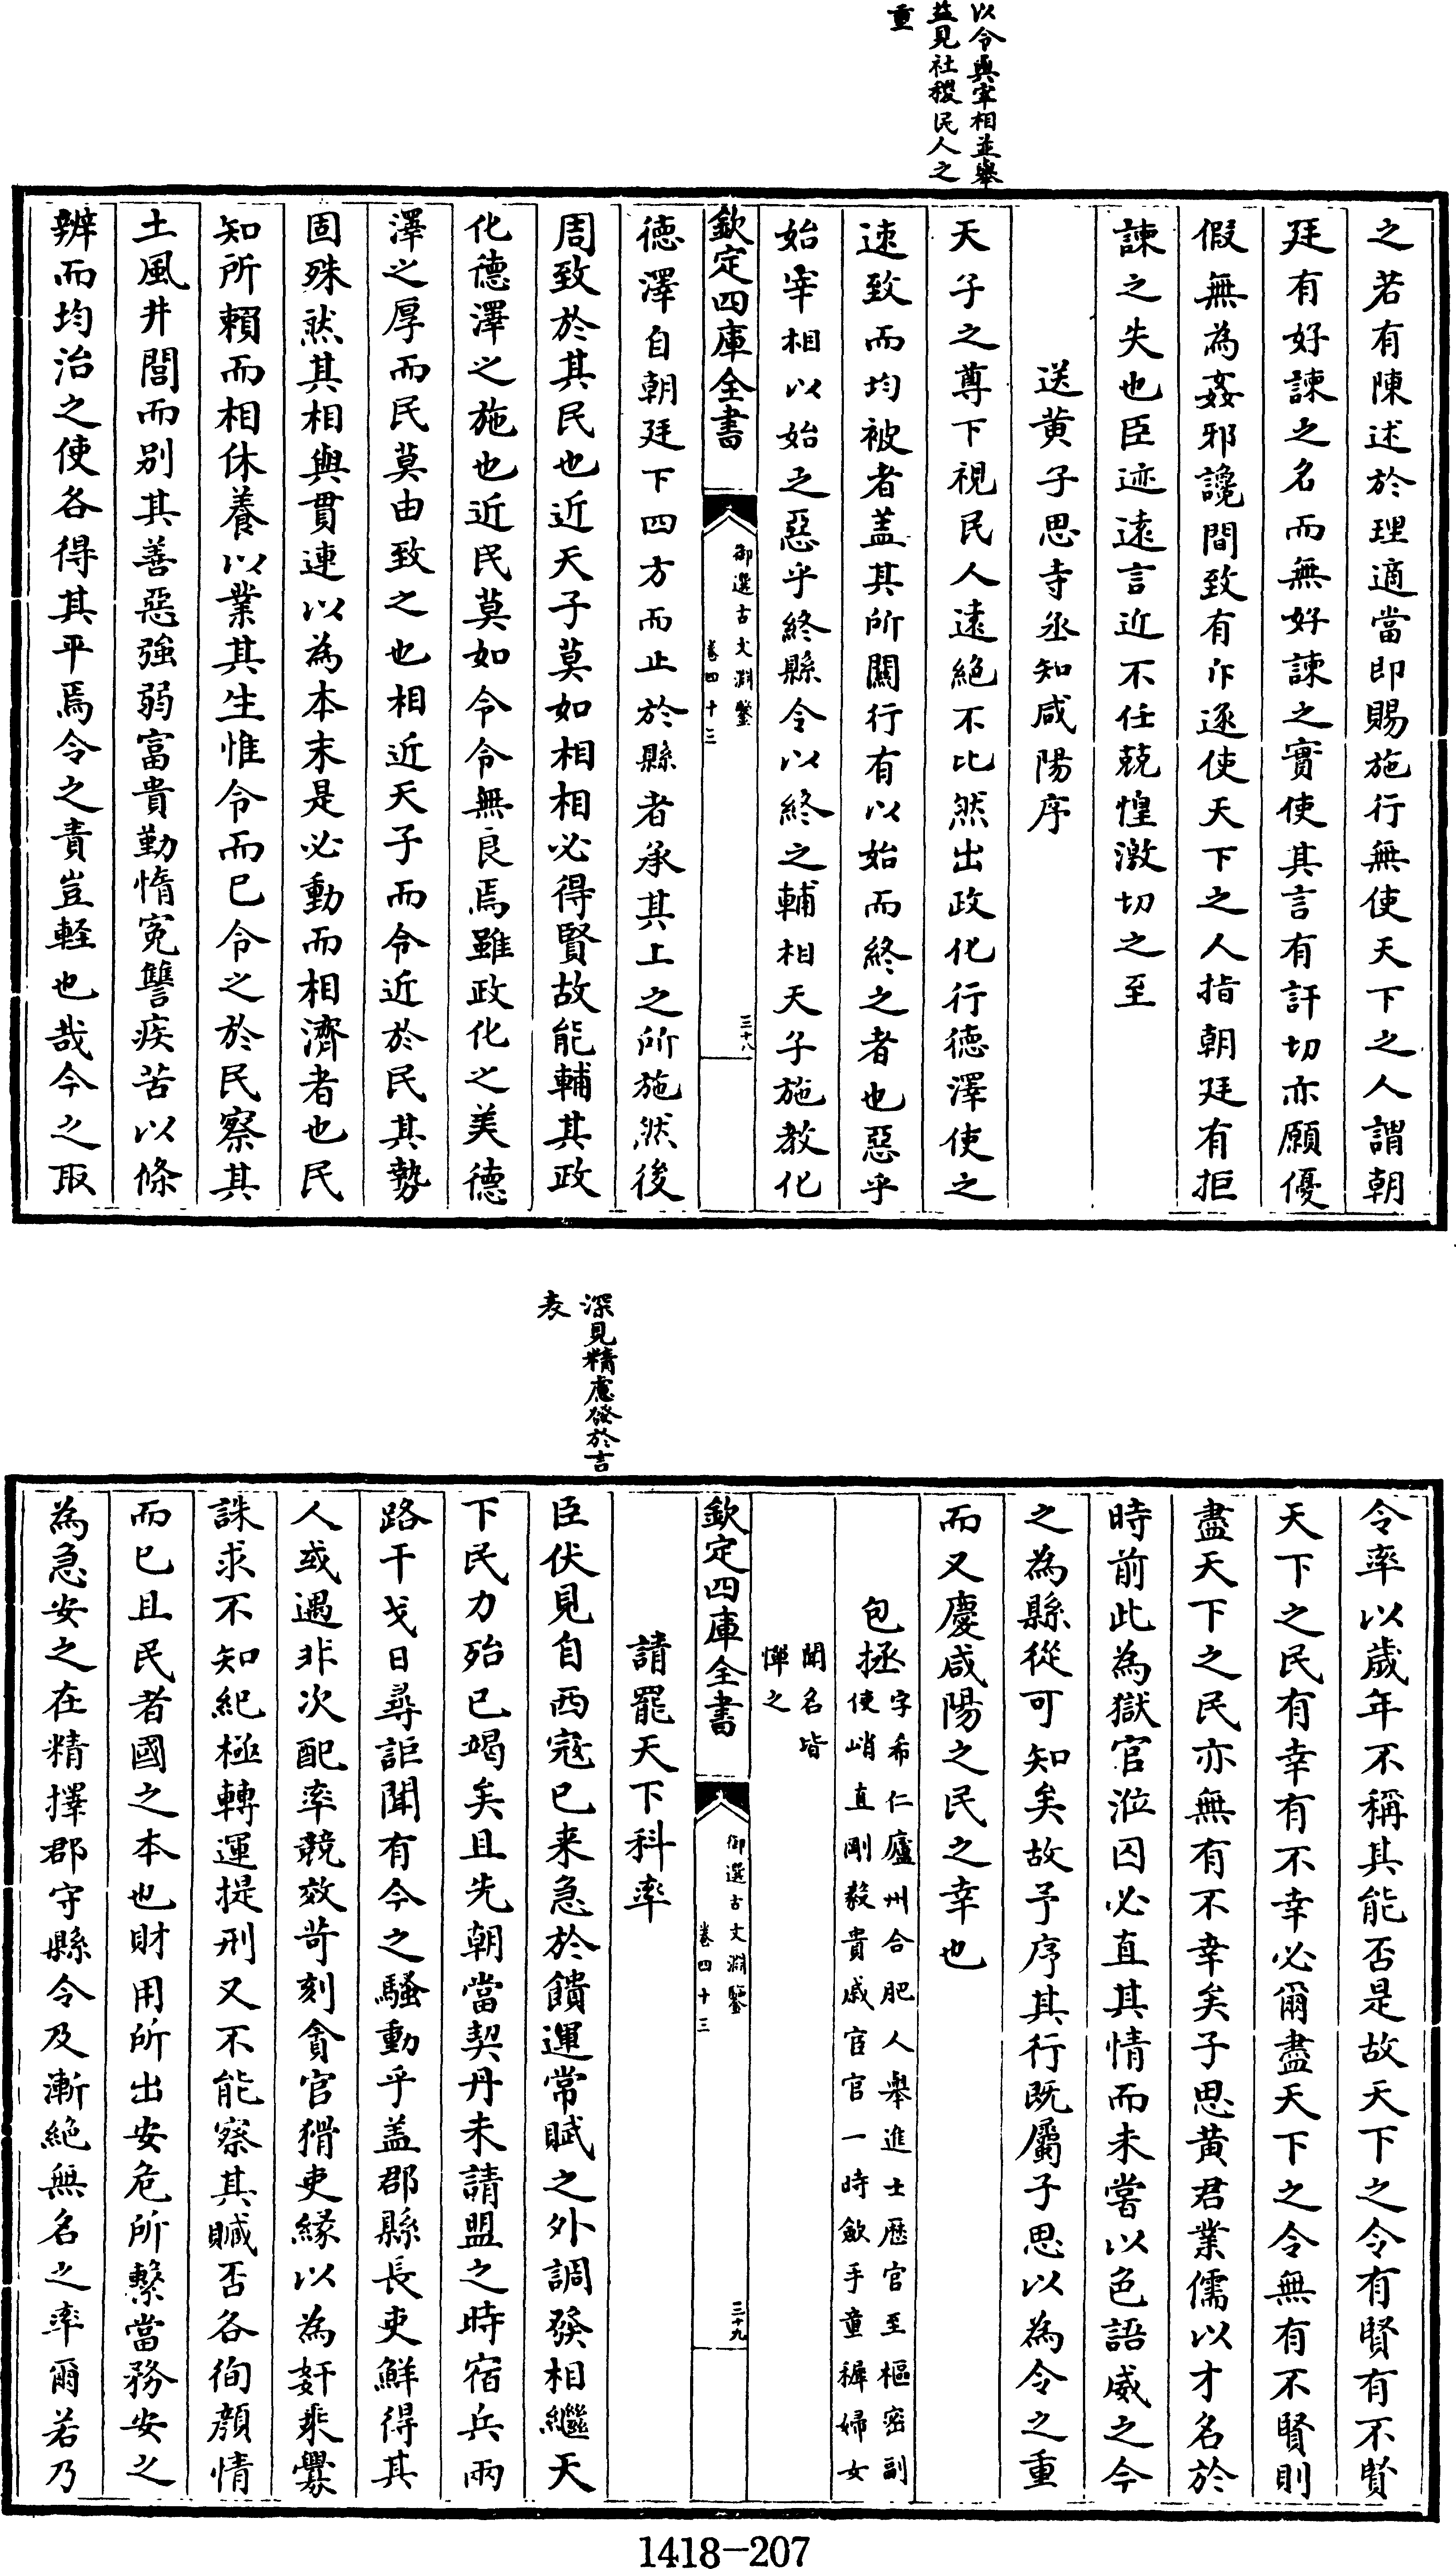 以令與宰相並舉
益見社稷民人之
重
之若有陳述於理適當即賜施行無使天下之人謂朝
廷有好諫之名而無好諫之實使其言有訐切亦願優
假無為姦邪讒間致有斥逐使天下之人指朝廷有拒
諫之失也臣迹遠言近不任兢惶激切之至
送黄子思寺丞知咸陽序
天子之尊下視民人遠絕不比然出政化行德澤使之
速致而均被者蓋其所關行有以始而終之者也惡乎
始宰相以始之惡乎終縣令以終之輔相天子施教化
欽定四庫全書
御選古文淵鑒
卷四十三
三十八
德澤自朝廷下四方而止於縣者承其上之所施然後
周致於其民也近天子莫如相相必得賢故能輔其政
化德澤之施也近民莫如令令無良焉雖政化之美德
澤之厚而民莫由致之也相近天子而令近於民其勢
固殊然其相與貫連以為本末是必動而相濟者也民
知所賴而相休養以業其生惟令而已令之於民察其
土風井閭而别其善惡強弱富貴勤惰寃讐疾苦以條
辨而均治之使各得其平焉令之責豈輕也哉今之取
深見精慮發於言
表
令率以歲年不稱其能否是故天下之令有賢有不賢
天下之民有幸有不幸必爾盡天下之令無有不賢則
盡天下之民亦無有不幸矣子思黄君業儒以才名於
時前此為獄官涖囚必直其情而未嘗以色語威之今
之為縣從可知矣故予序其行既屬子思以為令之重
而又慶咸陽之民之幸也
包拯字希仁廬州合肥人舉進士歷官至樞密副
使峭直剛毅貴戚宦官一時斂手童稺婦女
聞名皆
憚之
欽定四庫全書
御選古文淵鑒
卷四十三
三十九
請罷天下科率
臣伏見自西寇已来急於饋運常賦之外調發相繼天
下民力殆已竭矣且先朝當契丹未請盟之時宿兵兩
路干戈日尋詎聞有今之騷動乎盖郡縣長吏鮮得其
人或遇非次配率競效苛刻貪官猾吏緣以為奸乘釁
誅求不知紀極轉運提刑又不能察其贓否各徇顔情
而已且民者國之本也財用所出安危所繫當務安之
為急安之在精擇郡守縣令及漸絶無名之率爾若乃
1418-207